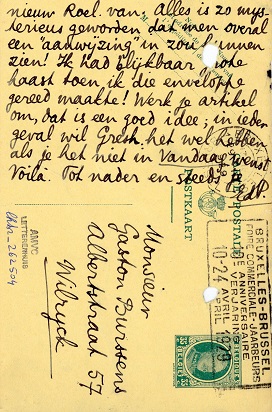 nieuw Roel. van. Alles is zo mys-
terieus geworden, dat men overal
een "aanwijzing" in zou kunnen
zien! Ik had blijkbaar grote
haast toen ik die enveloppe
gereed maakte! Werk je artikel
om, dat is een goed idee; in ieder
geval wil Gresh. het wel hebben
als je het niet in Vandaag wenst
Voilà. Tot nader en steeds! EdP.
POSTKAART
AMVC
LETTERENHUIS
Monsieur
Gaston Burssens
Albertstraat 57
Wilryck
BRUXELLES-BRUSSEL
FOIRE COMMERCIALE-JAARBEURS
10e ANNIVERSAIRE
10e VERJARING
10-24 AVRIL
APRIL 1929
35c
BELGIQUE